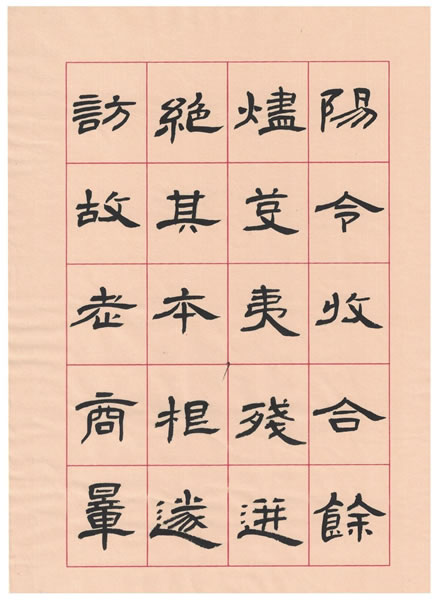 陽令收合餘
燼芟夷殘迸
絕其本根遂
訪故老商量